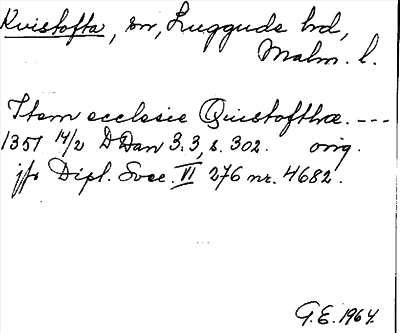 Kvistofta, sn, Luggude hd,
Malm. l.
Item ecclesie Quistofthæ. ---
1351 14/2 DDan 3.3, s. 302. orig.
jfr Dipl. Svec. VI 276 nr. 4682.
G.E. 1964.